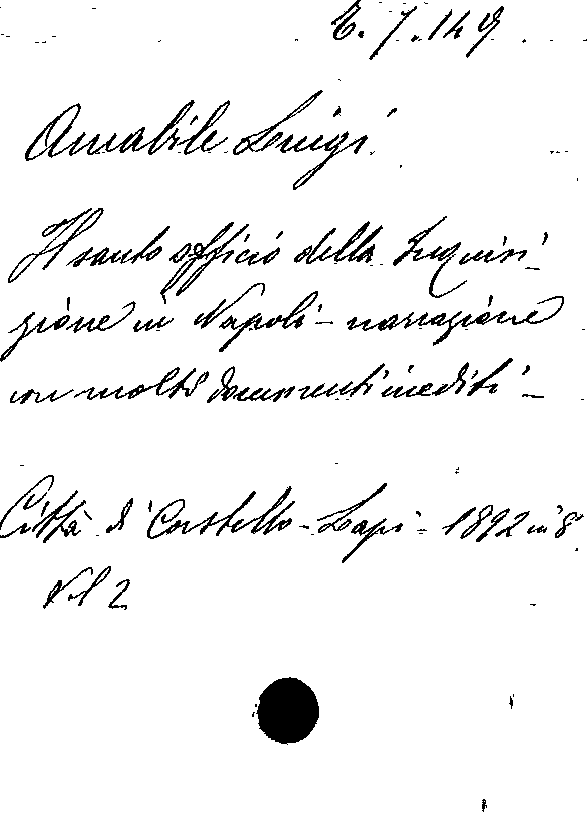 E. 7. 149
Amabile Luigi
Il santo officio della Inquisi-
zione in Napoli - narrazione
con molti documenti inediti -
Città di Castello - Lapi - 1892 in 8.
Vol 2